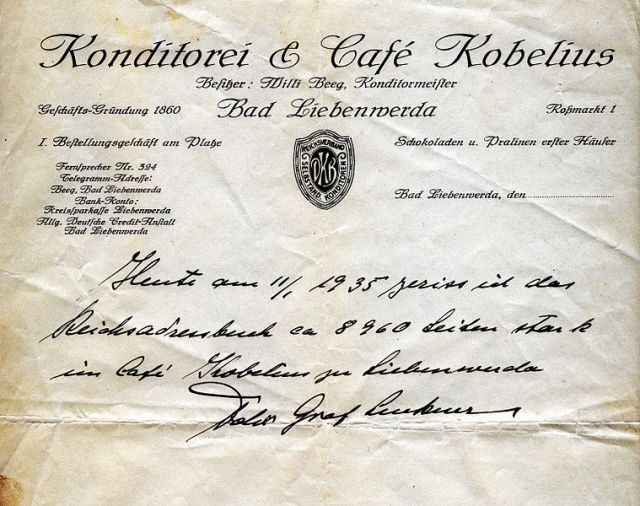 Konditorei & Café Kobelius
Besitzer: Willi Beeg, Konditormeister
Geschäfts-Gründung 1860
Bad Liebenwerda
Roßmarkt 1
I. Bestellungsgeschäft am Platze
Schokoladen u. Pralinen erster Häuser
Fernsprecher Nr. 324
Telegramm-Adresse:
Beeg, Bad Liebenwerda
Bank-Konto:
Kreissparkasse Liebenwerda
Allg. Deutsche Credit-Anstalt
Bad Liebenwerda
REICHSVERBAND
DKB
SELBSTÄND. KONDITOREN
Bad Liebenwerda, den
Heute am 11/1 1935 zeriss ich das
Reichsadressbuch ca 8960 Seiten stark
im Café Kobelius zu Liebenwerda
Felix Graf Luckner